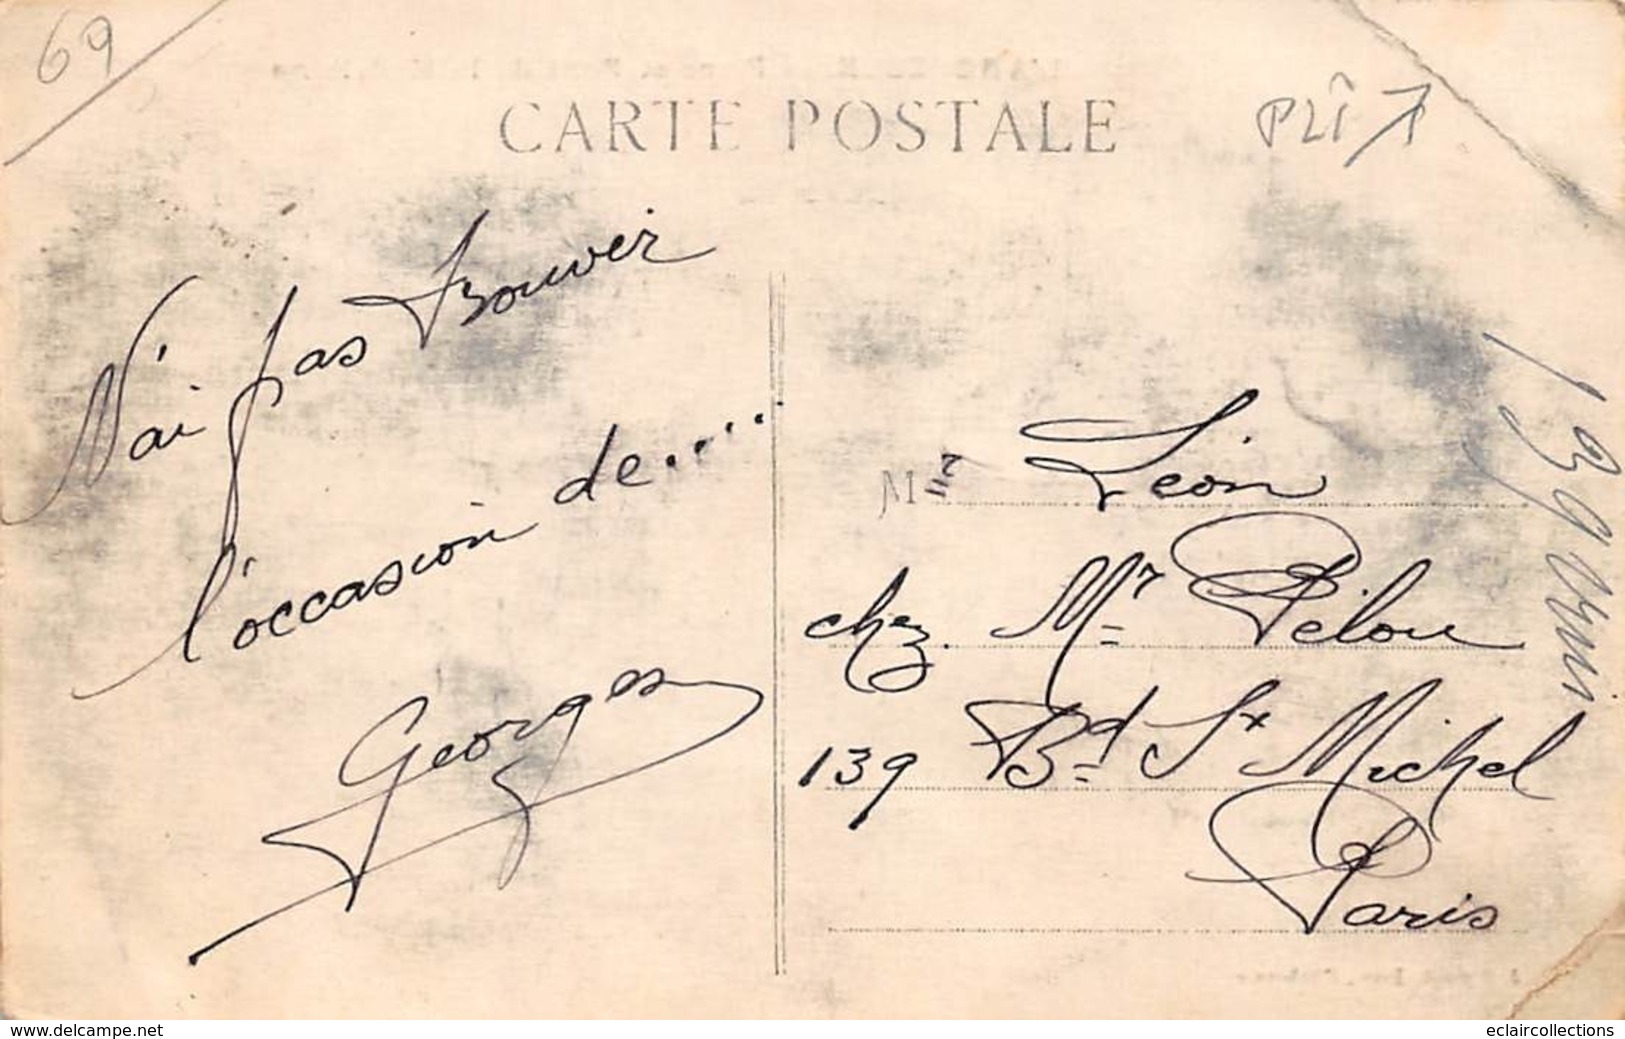 69
CARTE POSTALE
PLI
N'ai pas trouver
l'occasion de.......
Georges
Mr Léon
chez Mr Pelou
139 Bd St Michel
Paris
www.delcampe.net
eclaircollections